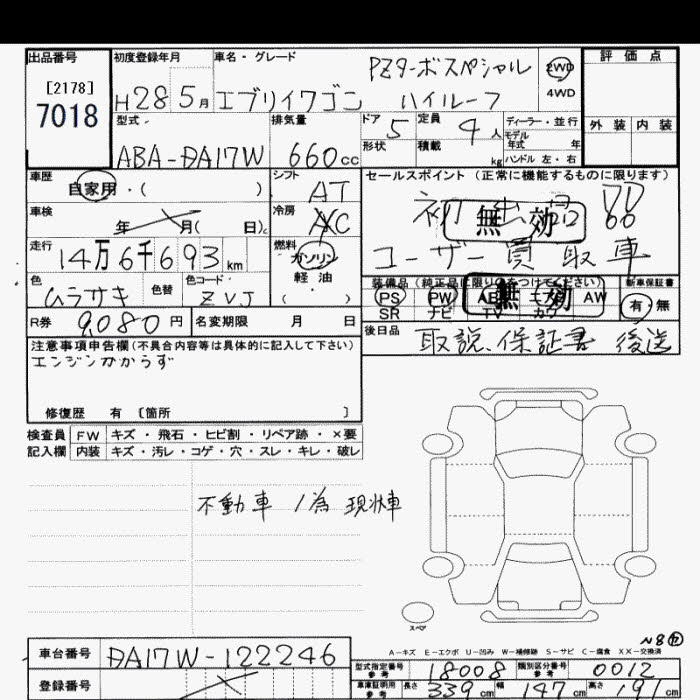 出品番号 初度登録年月 車名・グレード PZターボスペシャル 2WD 評価点
[2178] 4WD
7018 H28 5月 エブリイワゴン ハイルーフ
型式 排気量 ドア 5 定員 4人 ディーラー・並行 外装 内装
モデル年式 年
ABA-DA17W 660cc 形状 積載 kg ハンドル 左・右
車歴 シフト セールスポイント (正常に機能するものに限ります)
自家用・( ) AT
車検 年 月( 日)
冷房 AC 初出品!!
無効
走行 14万6千693km 燃料 ガソリン ユーザー買取車
軽油
( )
色 ムラサキ 色替 色コード ZVJ
装備品 (純正品に限り○をつけてください) 新車保証書
PS PW AB エアコン AW 有・無
無効
SR ナビ TV カワ
R券 9,080円 名変期限 月 日
後日品 取説、保証書 後送
注意事項申告欄(不具合内容等は具体的に記入して下さい)
エンジンかからず
修復歴 有 〔箇所 〕
検査員 FW キズ・飛石・ヒビ割・リペア跡・×要
記入欄 内装 キズ・汚レ・コゲ・穴・スレ・キレ・破レ
不動車ノ為 現状車
スペア
A-キズ E-エクボ U-凹み W-補修跡 S-サビ C-腐食 XX-交換済
車台番号 DA17W-122246
登録番号
型式指定番号 参考 18008 類別区分番号 参考 0012
車庫証明用 参考 長さ 339cm 幅 147cm 高さ 191cm